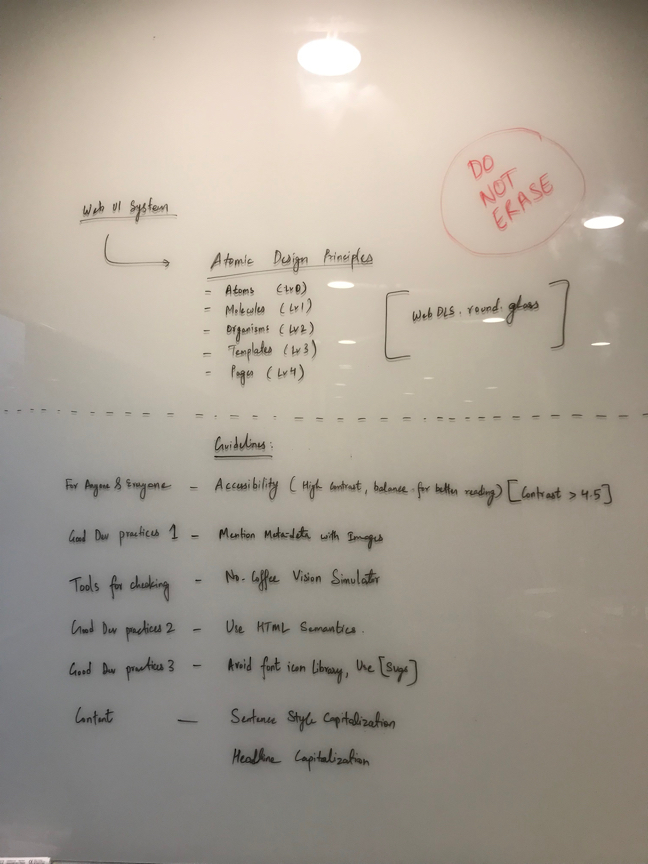 DO
NOT
ERASE
Web UI System
Atomic Design Principles
- Atoms (Lv0)
- Molecules (Lv1)
- Organisms (Lv2)
- Templates (Lv3)
- Pages (Lv4)
[Web DLS. round. glass]
Guidelines:
For Anyone & Everyone - Accessibility (High Contrast, balance for better reading) [Contrast > 4.5]
Good Dev practices 1 - Mention Meta-data with Images
Tools for checking - No-Coffee Vision Simulator
Good Dev practices 2 - Use HTML Semantics.
Good Dev practices 3 - Avoid font icon library, Use [Svgs]
Content - Sentence Style Capitalization
Headline Capitalization